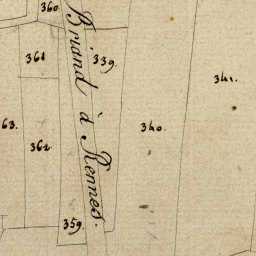 360.
361
339.
341.
63.
362
340.
Briand à Rennes.
359